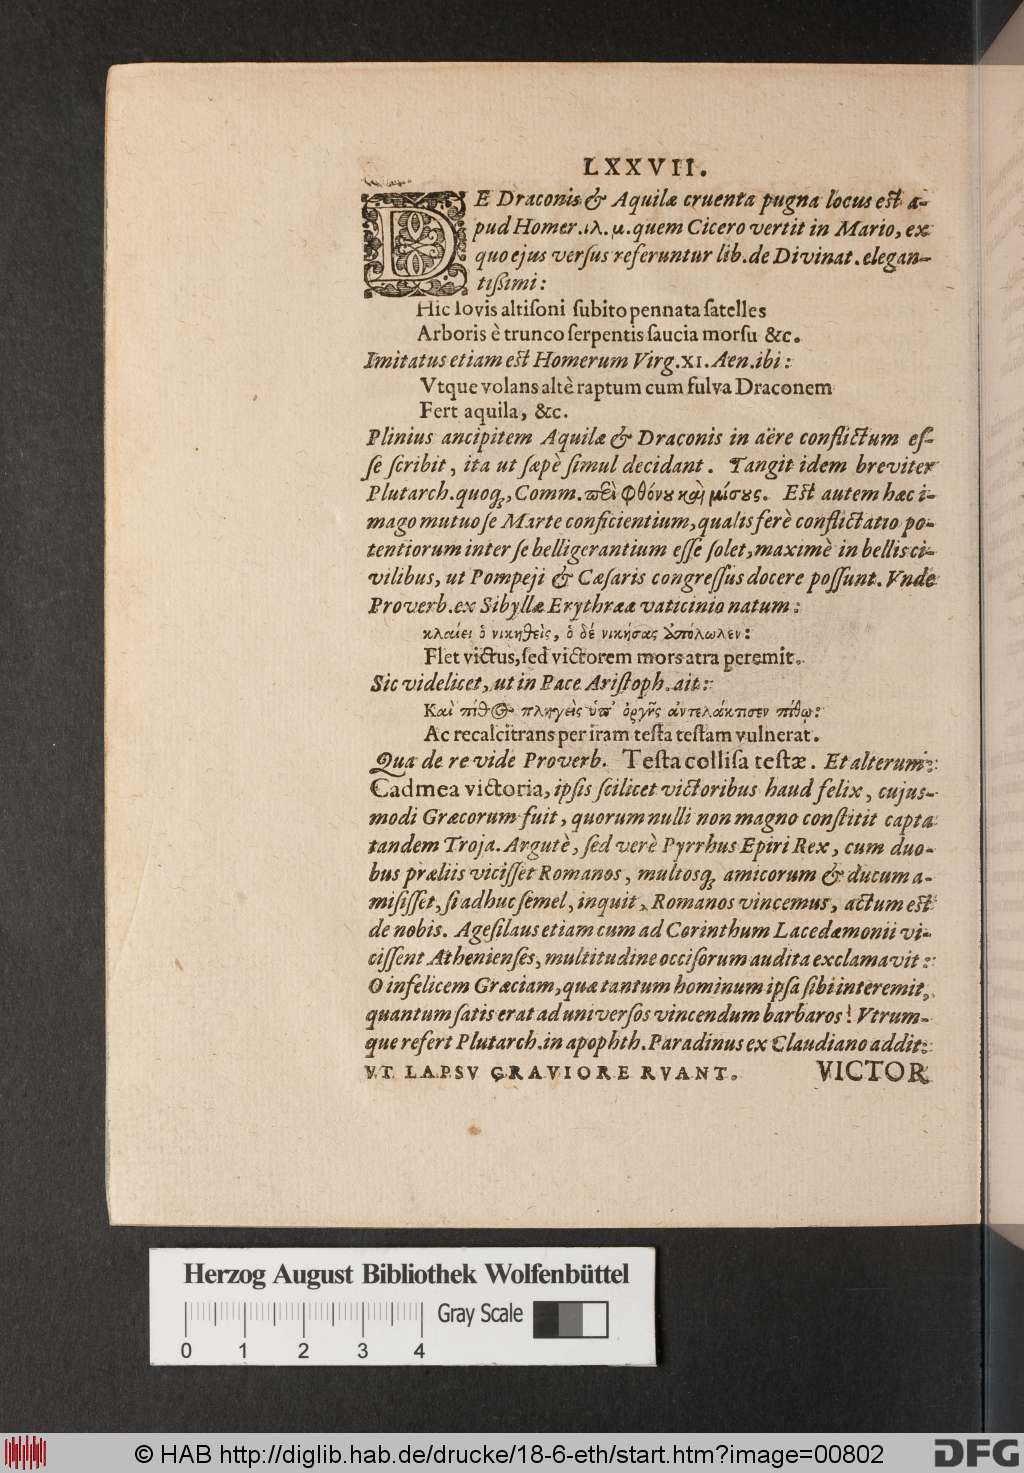 LXXVII.
DE Draconis & Aquilæ cruenta pugna locus est a-
pud Homer. ιλ. μ. quem Cicero vertit in Mario, ex
quo ejus versus referuntur lib. de Divinat. elegan-
tissimi:
Hic Iovis altisoni subito pennata satelles
Arboris è trunco serpentis saucia morsu &c.
Imitatus etiam est Homerum Virg. XI. Aen. ibi:
Vtque volans altè raptum cum fulva Draconem
Fert aquila, &c.
Plinius ancipitem Aquilæ & Draconis in aëre conflictum es-
se scribit, ita ut sæpè simul decidant. Tangit idem breviter
Plutarch. quoq, Comm. πεὶ φθόνου καὶ μίσους. Est autem hæc i-
mago mutuo se Marte conficientium, qualis ferè conflictatio po-
tentiorum inter se belligerantium esse solet, maximè in bellis ci-
vilibus, ut Pompeji & Cæsaris congressus docere possunt. Vnde
Proverb. ex Sibyllæ Erythrææ vaticinio natum:
κλαίει ὁ νικηθεὶς, ὁ δέ νικήσας ἀπόλωλεν:
Flet victus, sed victorem mors atra peremit.
Sic videlicet, ut in Pace Aristoph. ait:
Καὶ πίθος πληγεὶς ὑπ' ὀργῆς ἀντελάκτισεν πίθῳ:
Ac recalcitrans per iram testa testam vulnerat.
Qua de re vide Proverb. Testa collisa testæ. Et alterum:
Cadmea victoria, ipsis scilicet victoribus haud felix, cujus-
modi Græcorum fuit, quorum nulli non magno constitit capta
tandem Troja. Argutè, sed verè Pyrrhus Epiri Rex, cum duo-
bus præliis vicisset Romanos, multosq, amicorum & ducum a-
misisset, si adhuc semel, inquit, Romanos vincemus, actum est
de nobis. Agesilaus etiam cum ad Corinthum Lacedæmonii vi-
cissent Athenienses, multitudine occisorum audita exclamavit:
O infelicem Græciam, quæ tantum hominum ipsa sibi interemit,
quantum satis erat ad universos vincendum barbaros! Vtrum-
que refert Plutarch. in apophth. Paradinus ex Claudiano addit:
VT LAPSV GRAVIORE RVANT. VICTOR
Herzog August Bibliothek Wolfenbüttel
Gray Scale
0 1 2 3 4
© HAB http://diglib.hab.de/drucke/18-6-eth/start.htm?image=00802
DFG